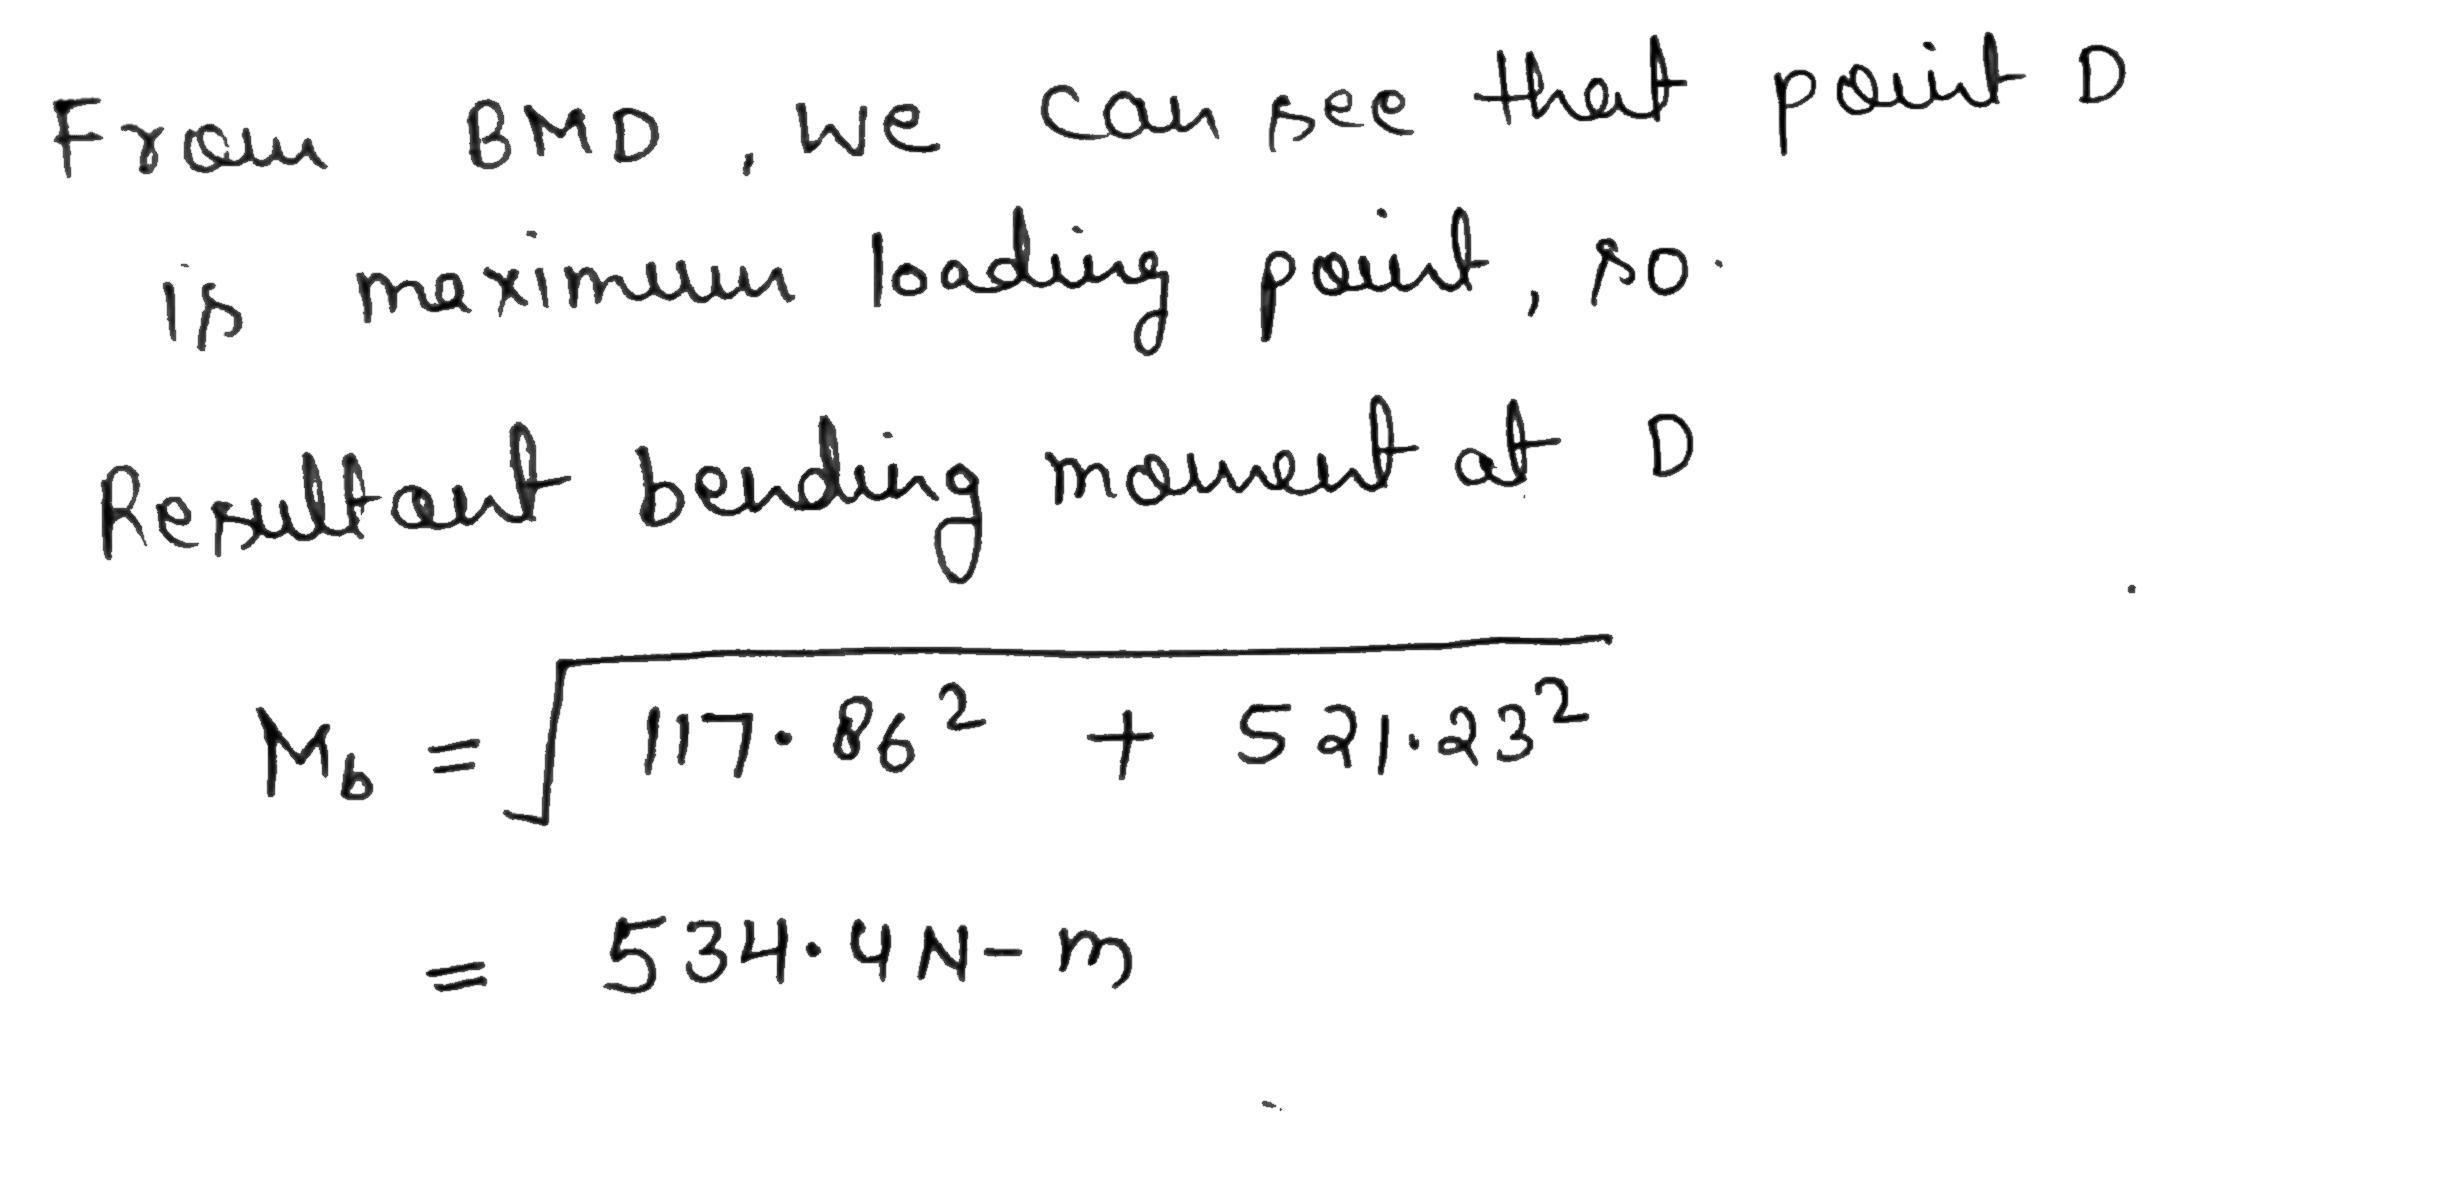 From BMD, we can see that point D
is maximum loading point, so.
Resultant bending moment at D
M_b = √(117.86² + 521.23²)
= 534.4 N-m